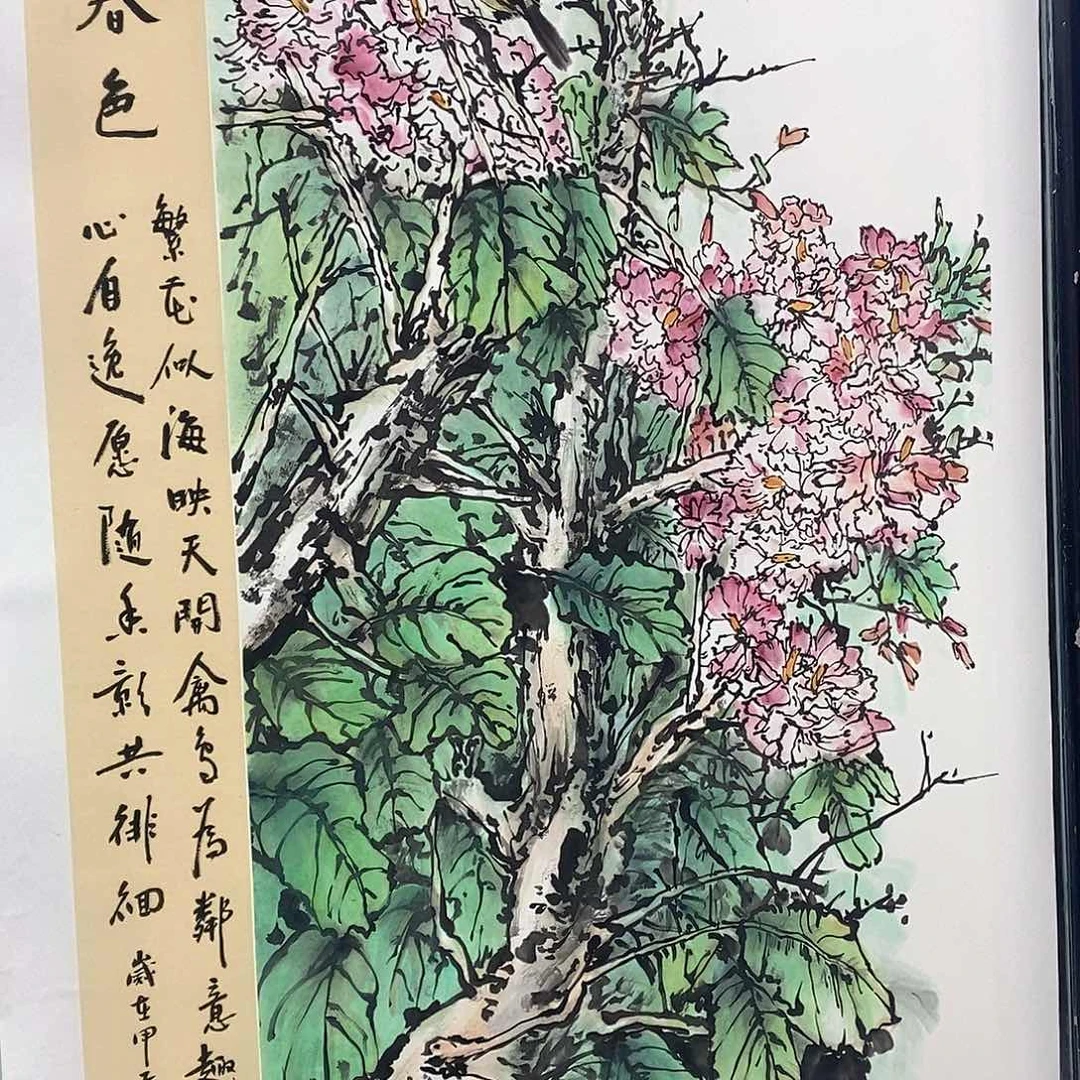 春色
繁花似海映天開禽鳥為鄰意趣
心自逸愿隨香影共徘徊
歲在甲